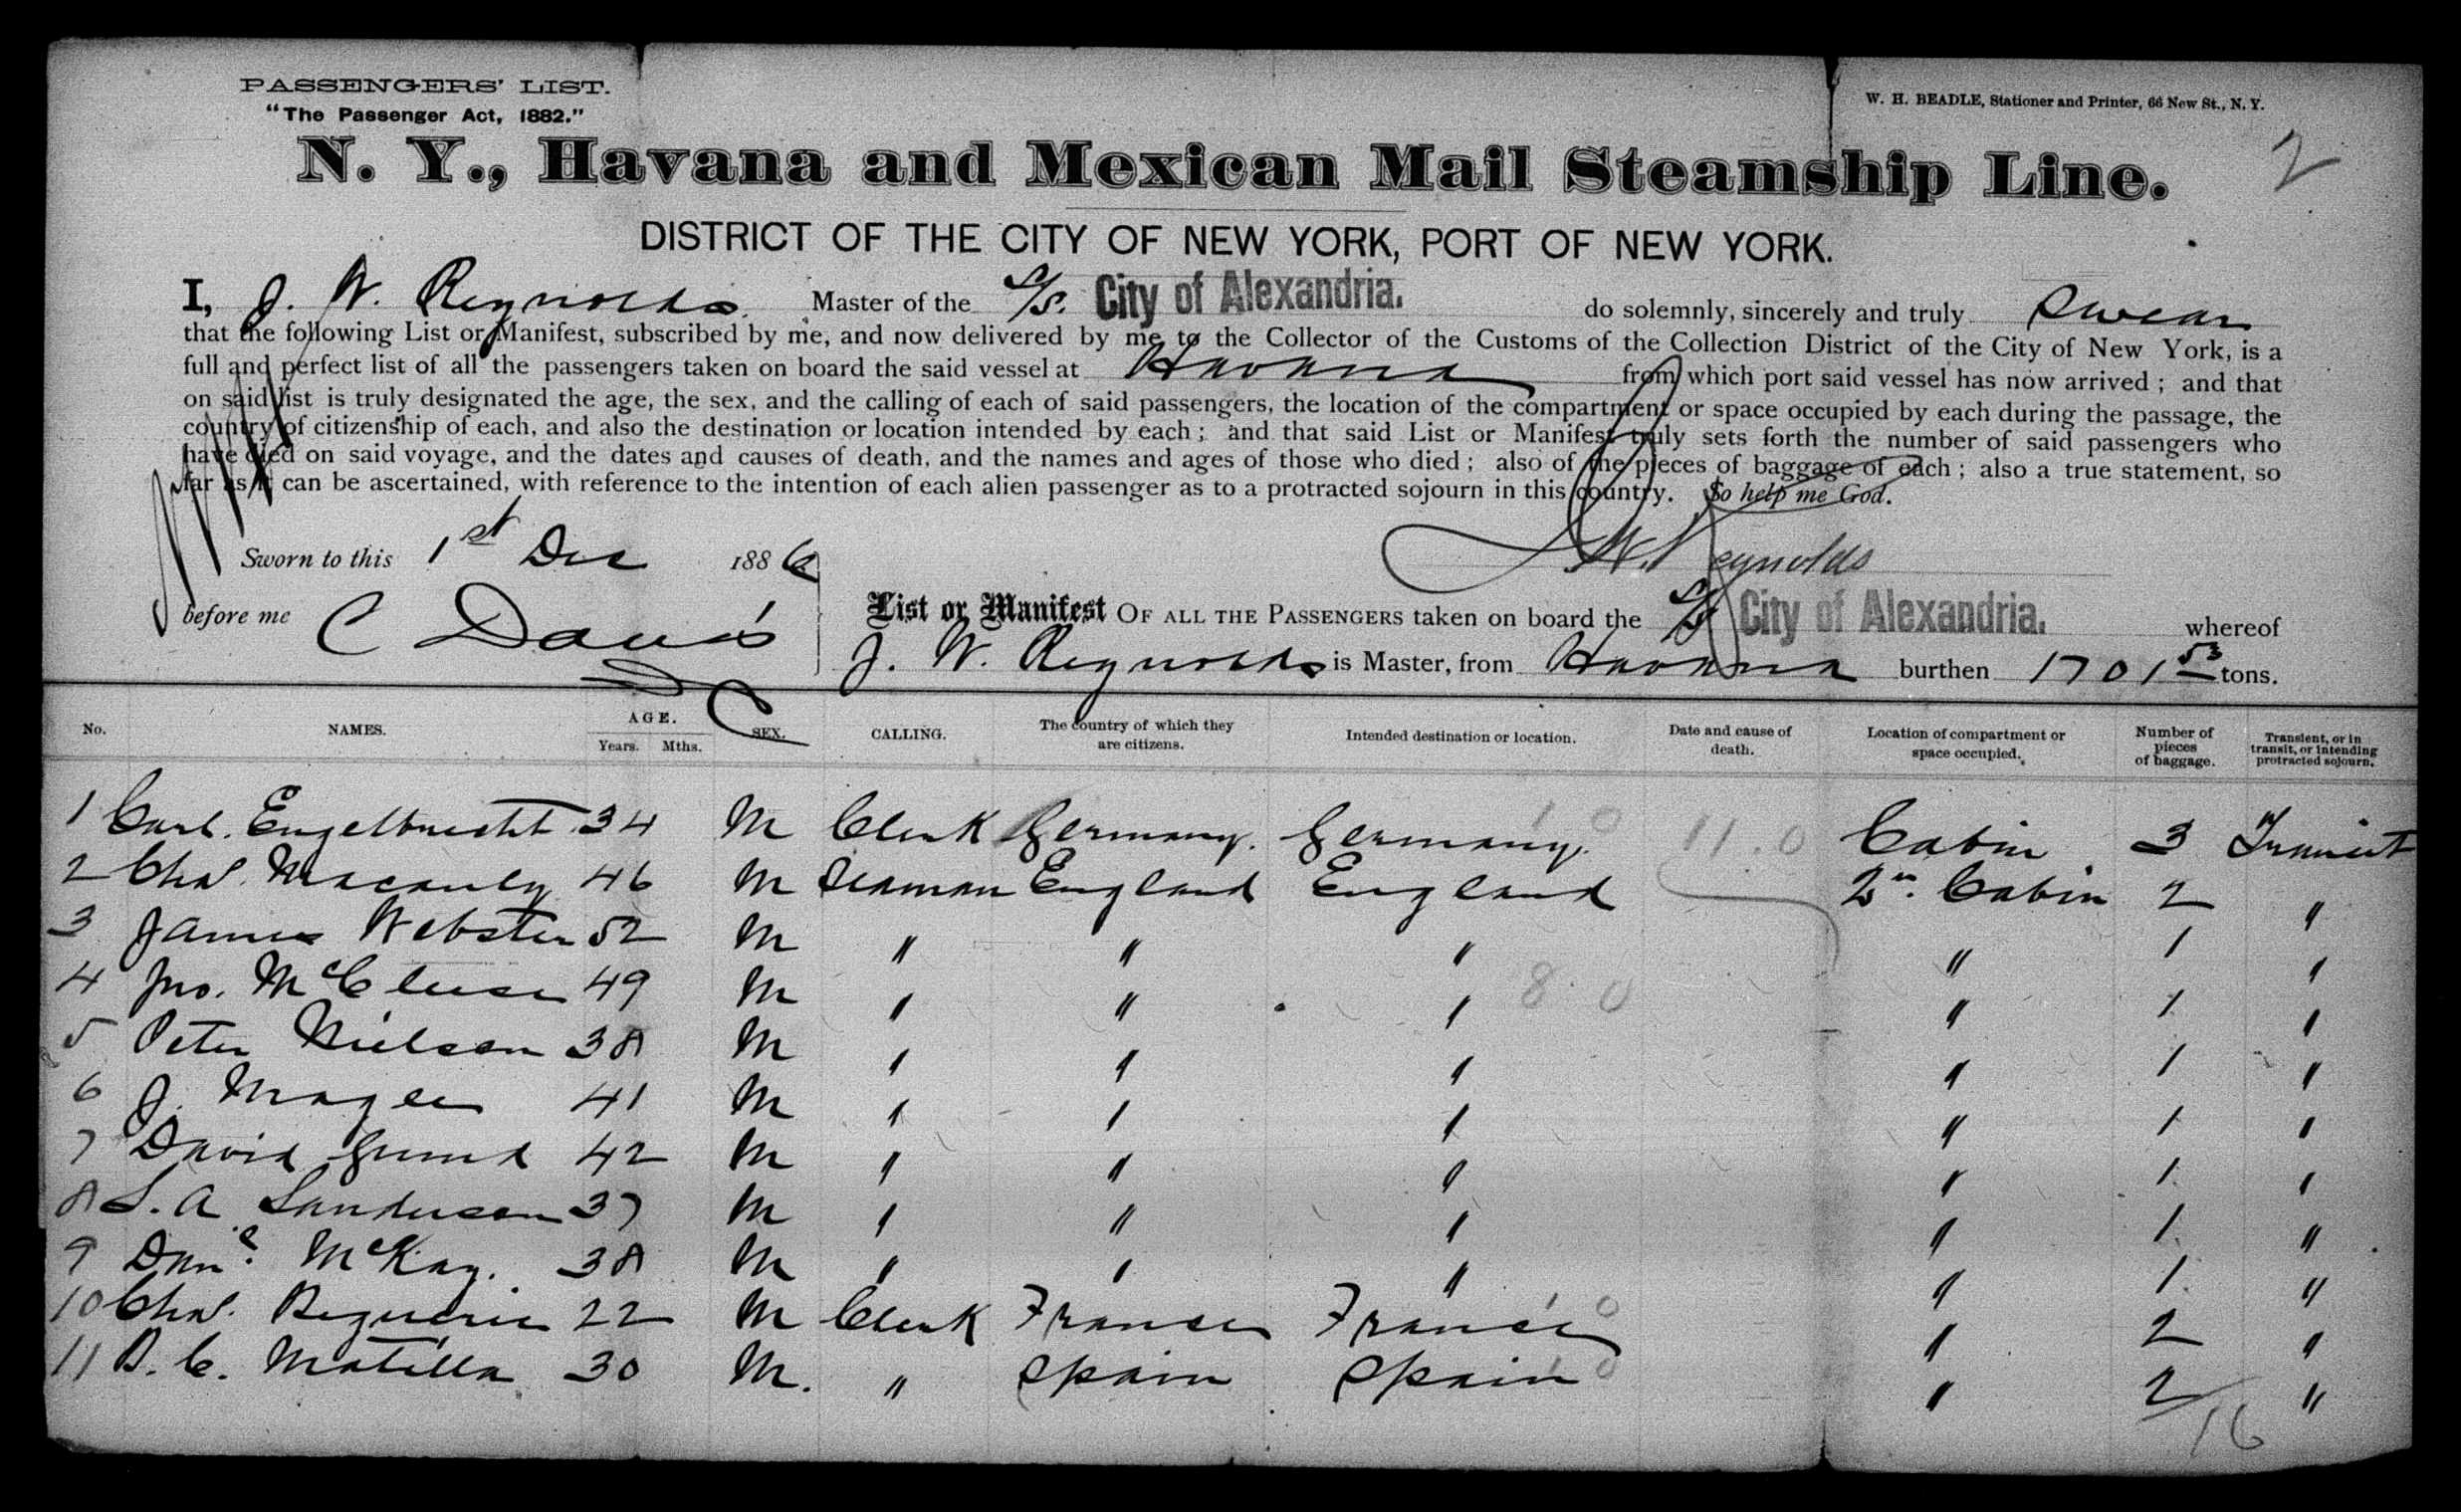 PASSENGERS' LIST.
"The Passenger Act, 1882."
W. H. BEADLE, Stationer and Printer, 66 New St., N. Y.
2
N. Y., Havana and Mexican Mail Steamship Line.
DISTRICT OF THE CITY OF NEW YORK, PORT OF NEW YORK.
I, J. W. Reynolds. Master of the S/S. City of Alexandria. do solemnly, sincerely and truly swear
that the following List or Manifest, subscribed by me, and now delivered by me to the Collector of the Customs of the Collection District of the City of New York, is a
full and perfect list of all the passengers taken on board the said vessel at Havana from which port said vessel has now arrived; and that
on said list is truly designated the age, the sex, and the calling of each of said passengers, the location of the compartment or space occupied by each during the passage, the
country of citizenship of each, and also the destination or location intended by each; and that said List or Manifest truly sets forth the number of said passengers who
have died on said voyage, and the dates and causes of death, and the names and ages of those who died; also of the pieces of baggage of each; also a true statement, so
far as it can be ascertained, with reference to the intention of each alien passenger as to a protracted sojourn in this country. So help me God.
Sworn to this 1st Dec 1886 J. W. Reynolds
before me C Davis
List or Manifest OF ALL THE PASSENGERS taken on board the S/S City of Alexandria. whereof
J. W. Reynolds is Master, from Havana burthen 1701 53 tons.
No. NAMES. AGE. Years. Mths. SEX. CALLING. The country of which they are citizens. Intended destination or location. Date and cause of death. Location of compartment or space occupied. Number of pieces of baggage. Transient, or in transit, or intending protracted sojourn.
1 Carl. Engelbrecht 34 M Clerk Germany. Germany. 1 0 11.0 Cabin 3 Transit
2 Chas. Macauly 46 M Seaman England England 2nd Cabin 2 "
3 James Webster 52 M " " " " 1 "
4 Jno. McCluse 49 M " " " 8.0 " 1 "
5 Peter Nielson 38 M " " " " 1 "
6 J. 41 M " " " " 1 "
7 David 42 M " " " " 1 "
8 S. A Sanderson 37 M " " " " 1 "
9 Danl. McKay. 38 M " " " " 1 "
10 Chas. 22 M Clerk France France 1 0 " 2 "
11 Matilla 30 M. " Spain Spain 1 0 " 2 "
16